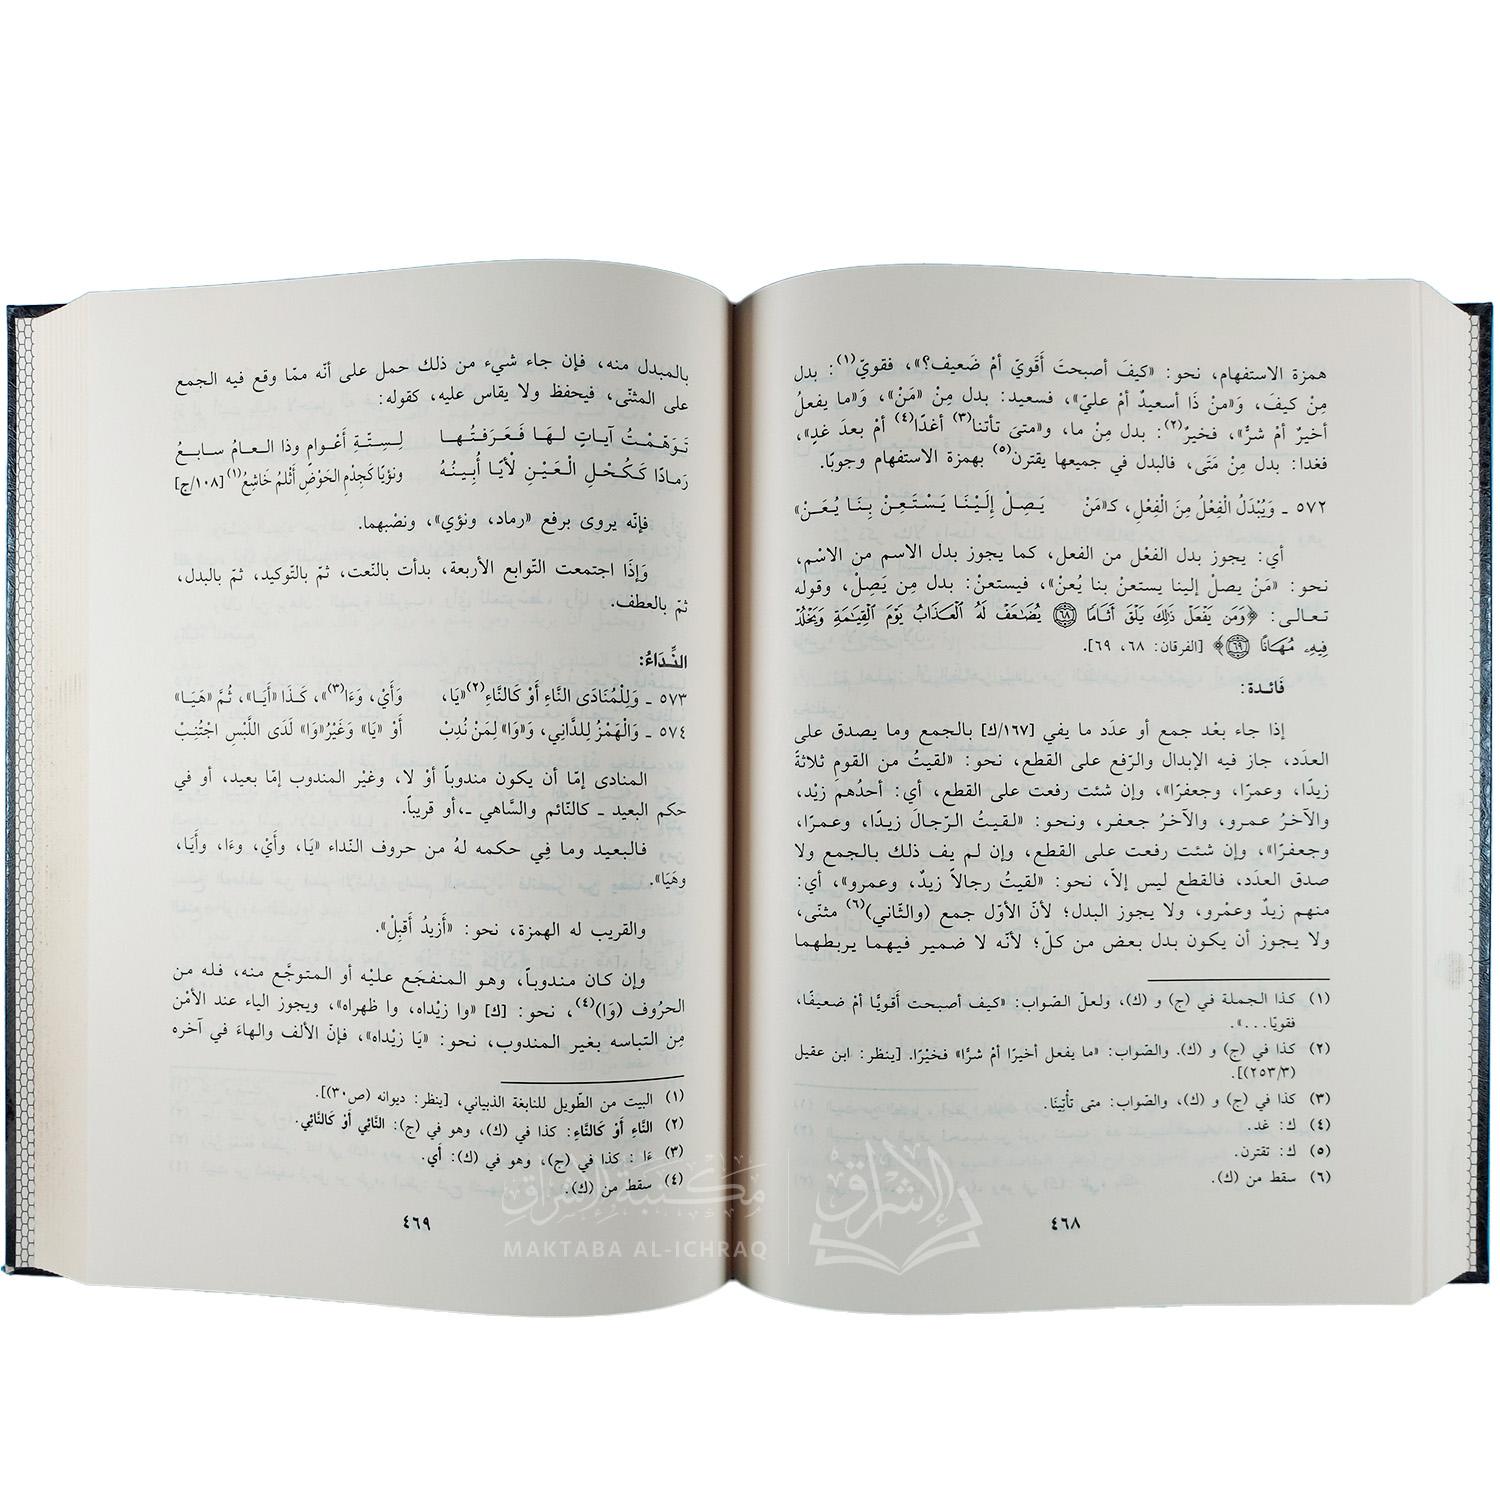 همزة الاستفهام، نحو: «كيفَ أصبحتَ أَقَويّ أمْ ضَعيف؟»، فقويّ(١): بدل
مِنْ كيفَ، وَ«منْ ذَا أسعيدٌ أمْ عليّ»، فسعيد: بدل مِنْ «مَنْ»، وَ«ما يفعلُ
أخيرٌ أمْ شرٌّ»، فخيرٌ(٢): بدل مِنْ ما، و«متىَ تأتنا(٣) أغدًا(٤) أمْ بعدَ غدٍ»،
فغدا: بدل مِنْ مَتَى، فالبدل في جميعها يقترن(٥) بهمزة الاستفهام وجوبًا.
٥٧٢ ـ وَيُبْدَلُ الْفِعْلُ مِنَ الْفِعْلِ، كـ«مَنْ يَـصِـلْ إِلَيْـنَـا يَسْـتَـعِـنْ بِـنَـا يُـعَـنْ»
أي: يجوز بدل الفعْل من الفعل، كما يجوز بدل الاسم من الاسْم،
نحو: «مَنْ يصلْ إلينا يستعنْ بنا يُعنْ»، فيستعنْ: بدل مِن يَصِلْ، وقوله
تـعـالـى: ﴿وَمَن يَفْعَلْ ذَٰلِكَ يَلْقَ أَثَامًا ٦٨ يُضَاعَفْ لَهُ الْعَذَابُ يَوْمَ الْقِيَامَةِ وَيَخْلُدْ
فِيهِ مُهَانًا ٦٩﴾ [الفرقان: ٦٨، ٦٩].
فَائدة:
إذا جاء بعْد جمع أو عدَد ما يفي [١٦٧/ك] بالجمع وما يصدق على
العدَد، جاز فيه الإبدال والرّفع على القطع، نحو: «لقيتُ من القومِ ثلاثةَ
زيدًا، وعمرًا، وجعفرًا»، وإن شئت رفعت على القطع، أي: أحدُهم زيْد،
والآخرُ عمرو، والآخرُ جعفر، ونحو: «لقيتُ الرّجالَ زيدًا، وعمرًا،
وجعفرًا»، وإن شئت رفعت على القطع، وإن لم يف ذلك بالجمع ولا
صدق العدَد، فالقطع ليس إلاّ، نحو: «لقيتُ رجالاً زيدٌ، وعمرو»، أي:
منهم زيدٌ وعمْرو، ولا يجوز البدل؛ لأنّ الأوّل جمع (والثّاني)(٦) مثنّى،
ولا يجوز أن يكون بدل بعض من كلّ؛ لأنّه لا ضمير فيهما يربطهما
(١) كذا الجملة في (ج) و (ك)، ولعلّ الصّواب: «كيف أصبحت أقويًا أمْ ضعيفًا،
فقويًا...».
(٢) كذا في (ج) و (ك). والصّواب: «ما يفعل أخيرًا أمْ شرًّا» فخيْرًا. [ينظر: ابن عقيل
(٢٥٣/٣)].
(٣) كذا في (ج) و (ك)، والصّواب: متى تأتِينَا.
(٤) ك: غد.
(٥) ك: تقترن.
(٦) سقط من (ك).
٤٦٨
بالمبدل منه، فإن جاء شيء من ذلك حمل على أنّه ممّا وقع فيه الجمع
على المثنّى، فيحفظ ولا يقاس عليه، كقوله:
تَـوَهَّـمْـتُ آيـاتٍ لـهَـا فَـعَـرَفـتُـهـا لِـستّـةِ أَعْـوامٍ وذا الـعـامُ سـابـعُ
رَمـادًا كَـكُـحْـلِ الْـعَـيْـنِ لْأيًـا أُبِـيـنُـهُ ونؤيًا كَجِذْمِ الحَوْضِ أَثْلمُ خَاشِعُ(١) [١٠٨/ج]
فإنّه يروى برفع «رماد، ونؤي»، ونصْبهما.
وَإذَا اجتمعت التّوابع الأربعة، بدأت بالنّعت، ثمّ بالتّوكيد، ثمّ بالبدل،
ثمّ بالعطف.
النِّـدَاءُ:
٥٧٣ ـ وَلِلْمُنَادَى النَّاءِ أَوْ كَالنَّاءِ(٢) «يَا، وَأَيْ، وَءَا(٣)»، كَـذَا «أَيَـا»، ثُـمَّ «هَيَـا»
٥٧٤ ـ وَالْهَمْزُ لِلدَّانِي، وَ«وَا» لِمَنْ نُدِبْ أَوْ «يَا» وَغَيْرُ«وَا» لَدَى اللَّبْسِ اجْتُنِبْ
المنادى إمّا أن يكون مندوباً أوْ لا، وغيْر المندوب إمّا بعيد، أو في
حكم البعيد ـ كالنّائم والسَّاهي ـ،أو قريباً.
فالبعيد وما فِي حكمه لهُ من حروف النّداء «يَا، وأَيْ، وءَا، وأَيَا،
وهَيَا».
والقريب له الهمزة، نحو: «أَزيدُ أَقبِلْ».
وإن كان مندوباً، وهو المنفجَع عليْه أو المتوجَّع منه، فله من
الحرُوف (وَا)(٤)، نحو: [ك] «وا زيْداه، وا ظهراه»، ويجوز الياء عند الأمْن
مِن التباسه بغير المندوب، نحو: «يَا زيْداه»، فإنّ الألف والهاءَ في آخره
(١) البيت من الطّويل للنابغة الذبياني، [ينظر: ديوانه (ص٣٠)].
(٢) النَّاءِ أَوْ كَالنَّاءِ: كذا في (ك)، وهو في (ج): النَّائِي أَوْ كَالنَّائِي.
(٣) ءَا : كذا في (ج)، وهو في (ك): أَي.
(٤) سقط من (ك).
٤٦٩
مكتبة الإشراق
MAKTABA AL-ICHRAQ
الإشراق